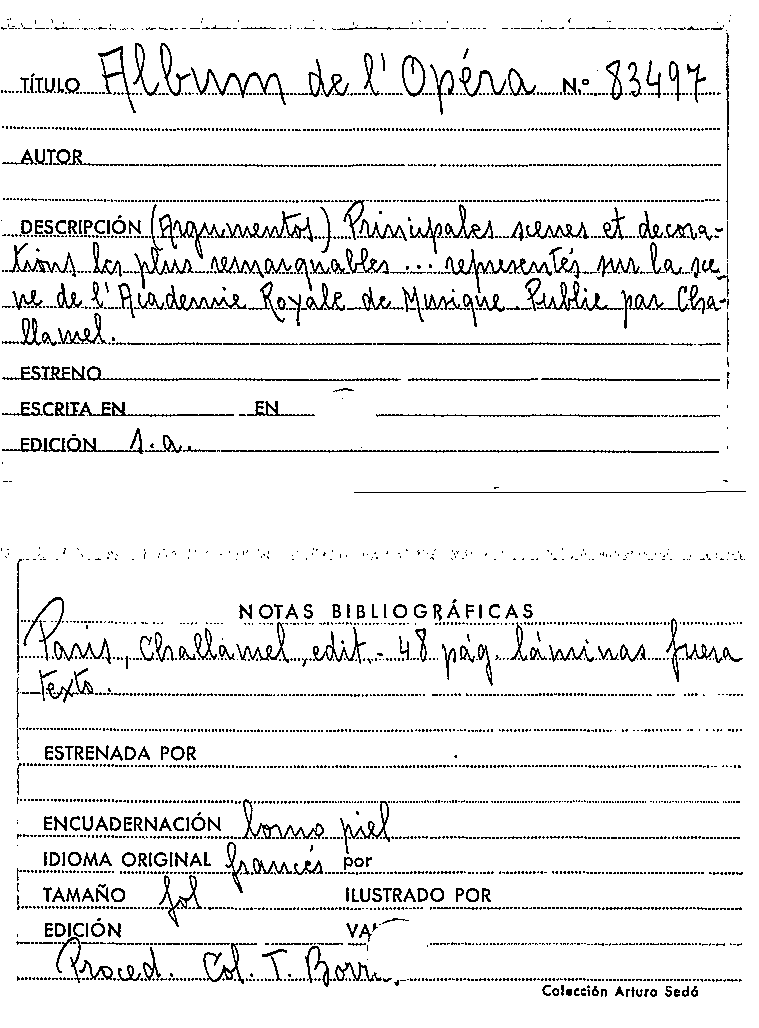 TÍTULO Album de l'Opéra N.º 83497
AUTOR
DESCRIPCIÓN (Argumentos) Principales scenes et decora-
tions les plus remarquables ... representés sur la sce-
ne de l'Academie Royale de Musique. Publie par Cha-
llamel.
ESTRENO
ESCRITA EN EN
EDICIÓN s.a.
NOTAS BIBLIOGRÁFICAS
Paris, Challamel, edit.- 48 pág. láminas fuera
texto.
ESTRENADA POR
ENCUADERNACIÓN lomo piel
IDIOMA ORIGINAL francés por
TAMAÑO fol. ILUSTRADO POR
EDICIÓN
Proced. Col. T.
Colección Arturo Sedó